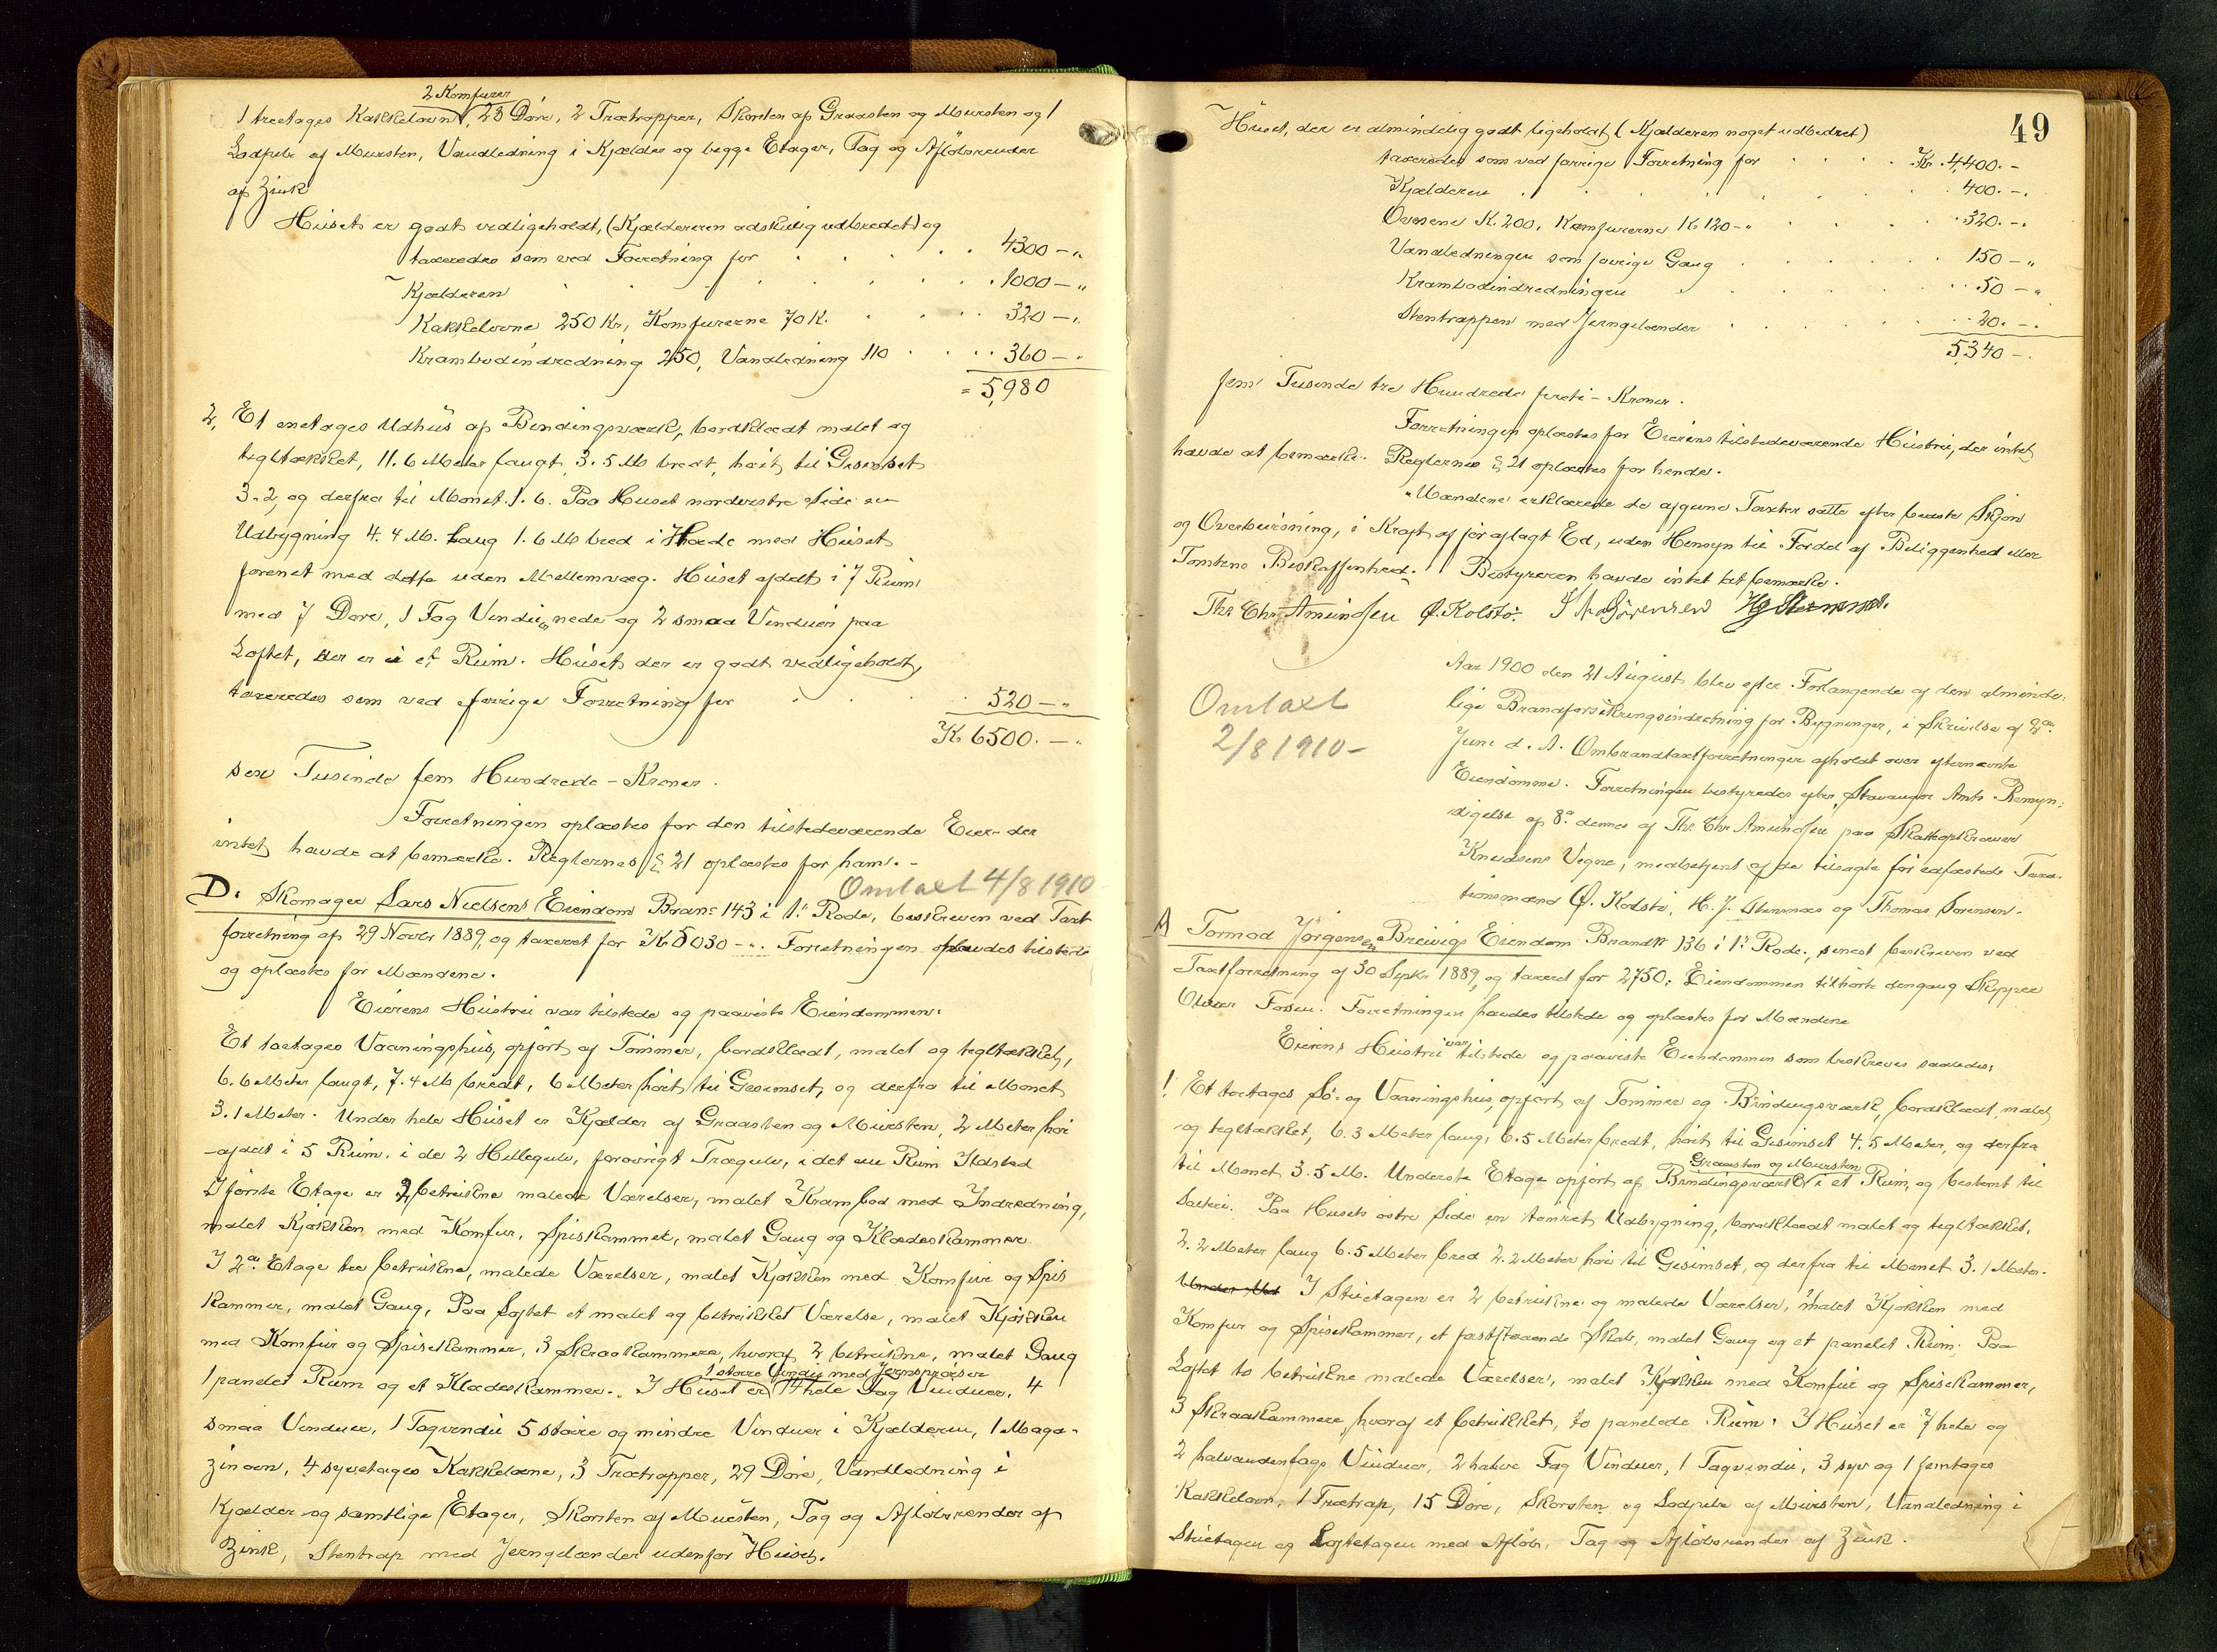 2 Komfurer
1 treetages Kakkelovn, 23 Døre, 2 Trætrapper, Skorsten af Graasten og Mursten og 1
Lodpibe af Mursten, Vandledning i Kjælder og begge Etager, Tag og Afløbsrender
af Zink
Huset er godt vedligeholdt, (Kjælderen adskillig udbredet) og
taxeredes som ved Forretning for 4300 - "
Kjælderen 1000 - "
Kakkelovne 250 Kr, Komfurerne 70 K. 320 - "
Krambodindredning 250, Vandledning 110 360 - "
= 5,980
2, Et enetages Udhus af Bindingsværk, bordklædt malet og
tegltækket, 11.6 Meter langt, 3.5 M bredt, høit til Gesimset
3.2, og derfra til Mønet 1.6. Paa Huset nordvestre Side en
Udbygning 4.4 M. Lang 1.6 M bred i Høide med Huset
forenet med dette uden Mellemvæg. Huset afdelt i 7 Rum
med 7 Døre, 1 Fag Vinduer nede og 2 smaa Vinduer paa
Loftet, der er i et Rum. Huset, der er godt vedligeholdt,
taxeredes som ved forrige Forretning for 520 - "
K. 6500. - "
sex Tusinde fem Hundrede - Kroner.
Forretningen oplæstes for den tilstedeværende Eier - der
intet havde at bemærke. Reglernes § 21 oplæstes for ham. -
Omtaxt 4/8 1910
D. Skomager Lars Nielsens Eiendom Bran: 143 i 1ste Rode, beskreven ved Taxt
forretning af 29 Novbr 1889, og taxeret for K 5030 - ". Forretningen havdes tilstede
og oplæstes for Mændene.
Eierens Hustru var tilstede og paaviste Eiendommen:
Et toetages Vaaningshus, opført af Tømmer, bordklædt, malet og tegltækket,
6.6 Meter langt, 7.4 M bredt, 6 Meter høit til Gesimset, og derfra til Mønet
3.1 Meter. Under hele Huset er Kjælder af Graasten og Mursten, 2 Meter høi
afdelt i 5 Rum, i de 2 Hellegulv, forøvrigt Trægulv, i det ene Rum Ildsted
I første Etage er 2 betrukne malede Værelser, malet Krambod med Indredning,
malet Kjøkken med Komfur, Spiskammer, malet Gang og Klædeskammer.
I 2den Etage tre betrukne, malede Værelser, malet Kjøkken med Komfur og Spis
kammer, malet Gang, Paa Loftet et malet og betrukket Værelse, malet Kjøkken
med Komfur og Spisekammer, 3 Skraakammere, hvoraf 2 betrukne, malet Gang
1 større Vindu med Jernsprosser
1 panelet Rum og et Klædeskammer. I Huset er 14 hele Fag Vinduer, 4
smaa Vinduer, 1 Tagvindu 5 større og mindre Vinduer i Kjælderen, 1 Maga-
zinovn, 4 syvetages Kakkelovne, 3 Trætrapper, 29 Døre, Vandledning i
Kjælder og samtlige Etager, Skorsten af Mursten, Tag og Afløbsrender af
Zink, Stentrap med Jerngelænder udenfor Huset.
49
Huset, der er almindelig godt ligeholdt (Kjælderen noget udbedret)
taxeredes som ved forrige Forretning for Kr. 4,400. -
Kjælderen 400. - "
Ovnene K. 200, Komfurerne K. 120 - " 320. - "
Vandledningen som forrige Gang 150 - "
Krambodindredningen 50 - "
Stentrappen med Jerngelænder 20. - "
5,340 - "
fem Tusinde tre Hundrede førti - Kroner.
Forretningen oplæstes for Eierens tilstedeværende Hustru, der intet
havde at bemærke. Reglernes § 21 oplæstes for hende.
Mændene erklærede de afgivne Taxter satte efter bedste Skjøn
og Overbevisning, i Kraft af før aflagt Ed, uden Hensyn til Fordel af Beliggenhed eller
Tomtens Beskaffenhed. Bestyreren havde intet at bemærke.
Ths. Chr Amundsen Ø. Kolstø. T A Sørensen
Omtaxt
2/8 1910 -
Aar 1900 den 21 August blev efter Forlangende af den alminde-
lige Brandforsikringsindretning for Bygninger, i Skrivelse af 2den
Juni d. A. Ombrandtaxtforretninger afholdt over efternævnte
Eiendomme. Forretningen bestyredes efter Stavanger Amts Bemyn-
digelse af 8de dennes af Ths. Chr Amundsen paa Skatteopkræver
Knudsens Vegne, medbetjent af de tilsagte før edfæstede Taxa-
tionsmænd Ø. Kolstø, H. J. Stemnæs og Thomas Sørensen.
A Tormod Jørgensen Breivigs Eiendom Brand№ 136 i 1ste Rode, senest beskreven ved
Taxtforretning af 30 Septr 1889, og taxeret for 2750: Eiendommen tilhørte dengang Skipper
Oliver Fosen. Forretningen havdes tilstede og oplæstes for Mændene
Eierens Hustru var tilstede og paaviste Eiendommen som beskreves saaledes:
1. Et toetages Sø- og Vaaningshus, opført af Tømmer og Bindingsværk, bordklædt, malet
og tegltækket, 6.3 Meter lang, 6.5 Meter bredt, høit til Gesimset 4.5 Meter, og derfra
Graasten og Mursten
til Mønet 3.5 M. Underste Etage opført af Bindingsværk i et Rum, og bestemt til
Salteri. Paa Husets østre Side en tømret Udbygning, bordklædt malet og tegltækket,
2.2 Meter lang 6.5 Meter bred 2.2 Meter høi til Gesimset, og derfra til Mønet 3.1 Meter.
I Stuetagen er 2 betrukne og malede Værelser, malet Kjøkken med
Komfur og Spisekammer, et fastftaaende Skab, malet Gang og et panelet Rum. Paa
Loftet to betrukne malede Værelser, malet Kjøkken med Komfur og Spisekammer,
3 Skraakammere, hvoraf et betrukket, to panelede Rum. I Huset er 7 hele og
2 halvandenfags Vinduer, 2 halve Fag Vinduer, 1 Tagvindu, 3 syv og 1 femtages
Kakkelovn, 1 Trætrap, 15 Døre, Skorsten og Lodpibe af Mursten, Vandledning i
Stuetagen og Loftetagen med Afløb, Tag og Afløbsrender af Zink.